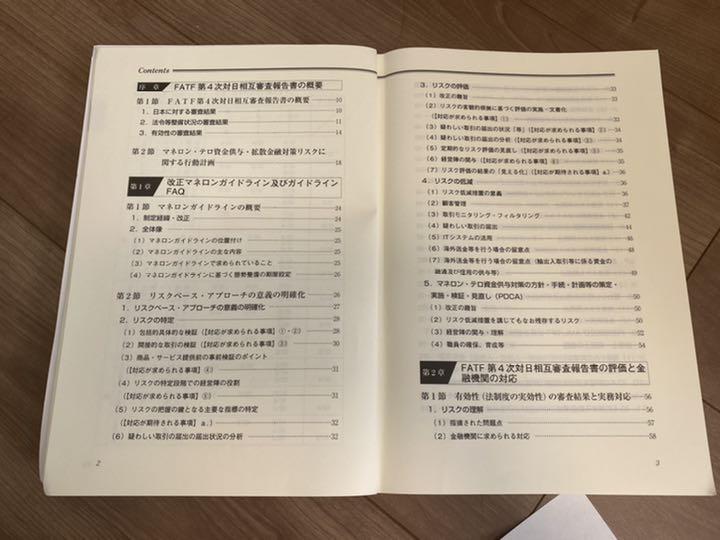 Contents
序 章 FATF 第4次対日相互審査報告書の概要
第1節 FATF第4次対日相互審査報告書の概要 10
1．日本に対する審査結果 10
2．法令等整備状況の審査結果 11
3．有効性の審査結果 14
第2節 マネロン・テロ資金供与・拡散金融対策リスクに
関する行動計画 18
第1章 改正マネロンガイドライン及びガイドライン
FAQ
第1節 マネロンガイドラインの概要 24
1．制定経緯・改正 24
2．全体像 25
（1）マネロンガイドラインの位置付け 25
（2）マネロンガイドラインの主な内容 25
（3）マネロンガイドラインで求められていること 25
（4）マネロンガイドラインに基づく態勢整備の期限設定 26
第2節 リスクベース・アプローチの意義の明確化 26
1．リスクベース・アプローチの意義の明確化 27
2．リスクの特定 28
（1）包括的具体的な検証（【対応が求められる事項】①・②） 28
（2）間接的な取引の検証（【対応が求められる事項】③） 30
（3）商品・サービス提供前の事前検証のポイント
（【対応が求められる事項】④） 31
（4）リスクの特定段階での経営陣の役割
（【対応が求められる事項】⑤） 31
（5）リスクの把握の鍵となる主要な指標の特定
（【対応が期待される事項】a.） 32
（6）疑わしい取引の届出の届出状況の分析 32
2
3．リスクの評価 33
（1）改正の趣旨 33
（2）リスクの客観的根拠に基づく評価の実施・文書化
（【対応が求められる事項】①） 33
（3）疑わしい取引の届出の状況「等」（【対応が求められる事項】②） 34
（4）疑わしい取引の届出の分析（【対応が求められる事項】③） 34
（5）定期的なリスク評価の見直し（【対応が求められる事項】） 35
（6）経営陣の関与（【対応が求められる事項】） 35
（7）リスク評価の結果の「見える化」（【対応が期待される事項】a.） 36
4．リスクの低減 36
（1）リスク低減措置の意義 36
（2）顧客管理 37
（3）取引モニタリング・フィルタリング 42
（4）疑わしい取引の届出 44
（5）ITシステムの活用 46
（6）海外送金等を行う場合の留意点 48
（7）海外送金等を行う場合の留意点（輸出入取引等に係る資金の
融通及び信用の供与等） 49
5．マネロン・テロ資金供与対策の方針・手続・計画等の策定・
実施・検証・見直し（PDCA） 50
（1）改正の趣旨 50
（2）リスク低減措置を講じてもなお残存するリスク 50
（3）経営陣の関与・理解 52
（4）職員の確保、育成等 54
第2章 FATF 第4次対日相互審査報告書の評価と金
融機関の対応
第1節 有効性（法制度の実効性）の審査結果と実務対応 56
1．リスクの理解 56
（1）指摘された問題点 57
（2）金融機関に求められる対応 58
3